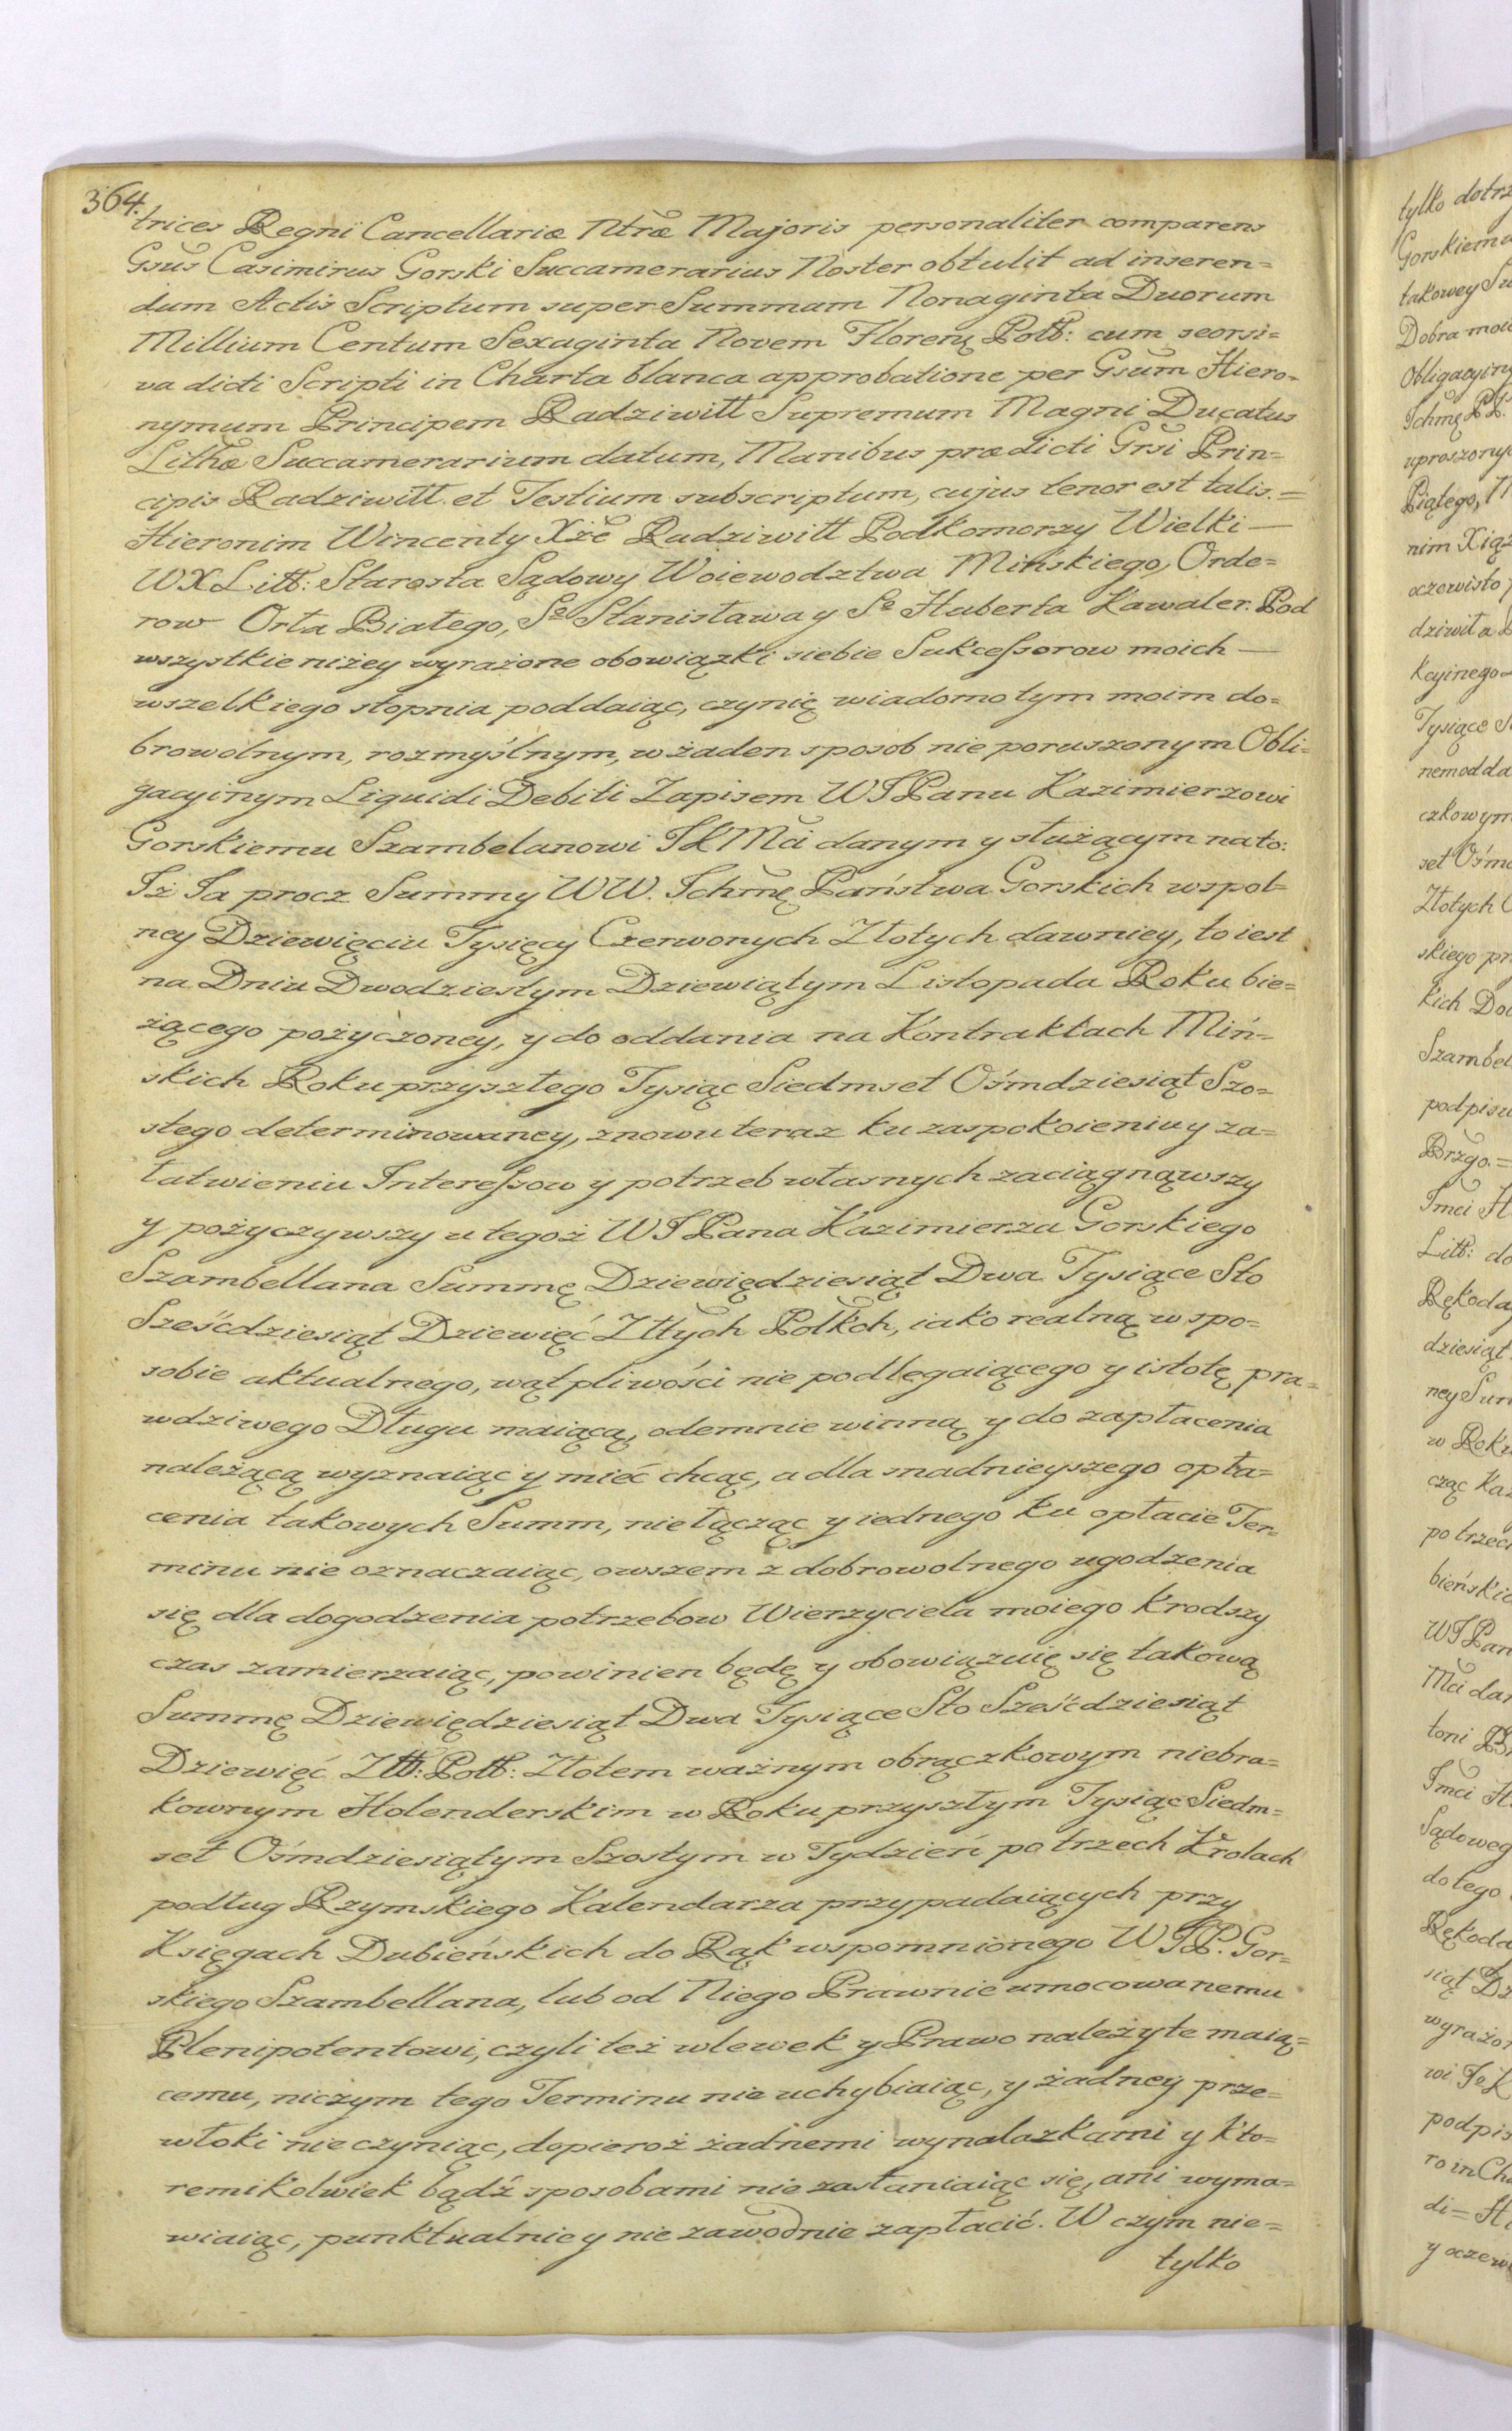 364.
trices Regni Cancellariæ Ntræ Majoris personaliter comparens
Gsūs Casimirus Gorski Succamerarius Noster obtulit ad inseren=
dum Actis Scriptum super Summam Nonaginta Duorum
Millium Centum Sexaginta Novem Floreng Poll: cum seorsi=
va dicti Scripti in Charta blanca approbatione per Gsūm Hiero=
nymum Principem Radziwiłł Supremum Magni Ducatus
Lithæ Succamerarium datum, Manibus prædicti Grsi Prin=
cipis Radziwiłł et Testium subscriptum, cujus tenor est talis. =
Hieronim Wincenty Xżē Radziwiłł Podkomorzy Wielki —
WXLitt: Starosta Sądowy Woiewodztwa Mińskiego, Orde=
row Orła Białego, Sgo Stanisława y Sgo Huberta Kawaler. Pod
wszystkie niżey wyrażone obowiązki siebie Sukcessorow moich —
wszelkiego stopnia poddaiąc, czynię wiadomo tym moim do=
browolnym, rozmyślnym, w żaden sposob nie poruszonym Obli=
gacyinym Liquidi Debiti Zapisem WJPanu Kazimierzowi
Gorskiemu Szambelanowi JKMci danym y służącym na to:
Iż Ja procz Summy WW. Ichmę Państwa Gorskich wspol=
ney Dziewięciu Tysięcy Czerwonych Złotych dawniey, to iest
na Dniu Dwudziestym Dziewiątym Listopada Roku bie=
żącego pożyczoney, y do oddania na Kontraktach Miń=
skich Roku przyszłego Tysiąc Siedmset Ośmdziesiąt Szo=
stego determinowaney, znowu teraz ku zaspokoieniu y za=
łatwieniu Interessow y potrzeb własnych zaciągnąwszy
y pożyczywszy u tegoż WJPana Kazimierza Gorskiego
Szambellana Summę Dziewiędziesiąt Dwa Tysiące Sto
Sześćdziesiąt Dziewięć Złtych Polkch, iako realną w spo=
sobie aktualnego, wątpliwości nie podlegaiącego y istotę pra=
wdziwego Długu maiącą, odemnie winną y do zapłacenia
należącą wyznaiąc y mieć chcąc, a dla snadnieyszego opła=
cenia takowych Summ, nie łącząc y iednego ku opłacie Ter=
minu nie oznaczaiąc, owszem z dobrowolnego ugodzenia
się dla dogodzenia potrzebow Wierzyciela moiego krodszy
czas zamierzaiąc, powinien będę y obowiązuię się takową
Summę Dziewiędziesiąt Dwa Tysiące Sto Sześćdziesiąt
Dziewięć Złł: Poll: Złotem ważnym obrączkowym niebra=
kownym Holenderskim w Roku przyszłym Tysiąc Siedm=
set Ośmdziesiątym Szostym w Tydzień po trzech Krolach
podług Rzymskiego Kalendarza przypadaiących przy
Księgach Dubieńskich do Rąk wspomnionego WJP. Gor=
skiego Szambellana, lub od Niego Prawnie umocowanemu
Plenipotentowi, czyli też wlewek y Prawo należyte maią=
cemu, niczym tego Terminu nie uchybiaiąc, y żadney prze=
włoki nie czyniąc, dopieroż żadnemi wynalazkami y kto=
remikolwiek bądź sposobami nie zasłaniaiąc się, ani wyma=
wiaiąc, punktualnie y nie zawodnie zapłacić. W czym nie=
tylko
tylko
Gorskiem
takowey
Dobra
Obligacyiny
uproszony
Piątego,
nim
oczewisto
dziwiłła
kcyinego
Tysiące
czkowym
set
Złotych
skiego
kich
Szambel
podpis
Brzgo. =
Jmci
Litt: do
Rękoda
dziesiąt
ney
w Roku
cząc
po trzec
bieńskic
WJPan
Mci
toni
Jmci
Sądoweg
do tego
Rękoda
siąt
wyrażo
podpis
ro in
di =
y oczew